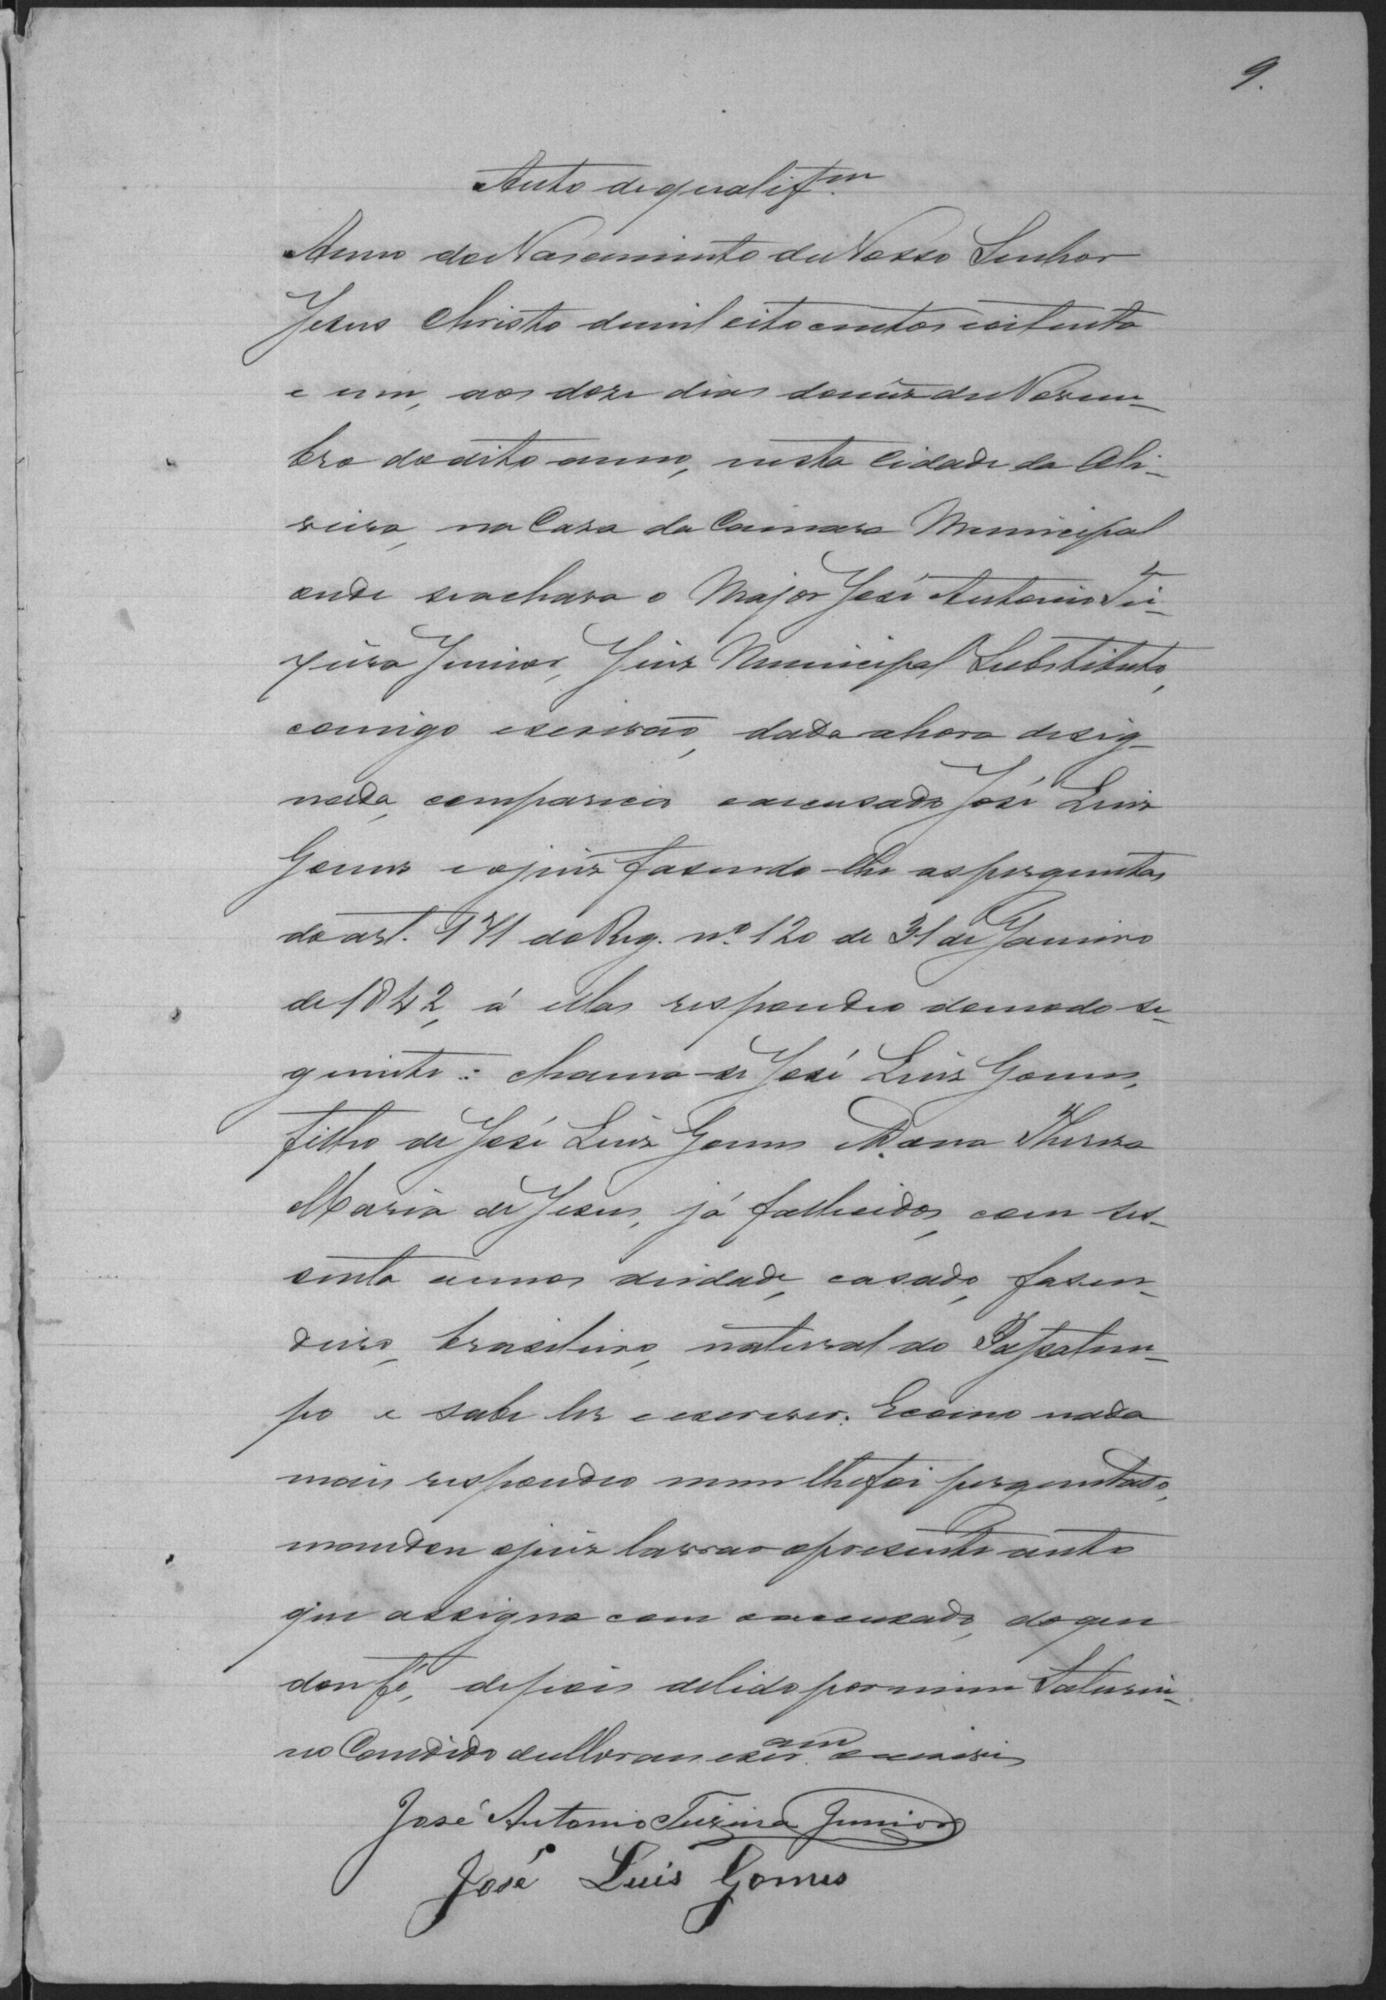 9.
Auto de qualifm.
Anno do Nascimento de Nosso Senhor
Jesus Christo de mil oito centos e oitenta
e um, aos doze dias do mez de Novem-
bro do dito anno, nesta Cidade da Oli-
veira, na Casa da Camara Municipal
onde se achava o Major José Antonio Tei-
xeira Junior, Juiz Municipal Substituto,
comigo escrivão, dada a hora desig-
nada, compareceo o accusado José Luiz
Gomes e o juiz fasendo-lhe as perguntas
do art. 171 do Reg. nº 120 de 31 de Janeiro
de 1842, á ellas respondeo do modo se-
guinte: chama-se José Luiz Gomes,
filho de José Luiz Gomes e Dona Thereza
Maria de Jesus, já fallecidos, com ses-
senta annos de idade, casado, fasen-
deiro, brasileiro, natural do Passatem-
po e sabe ler e escrever. E como nada
mais respondeo nem lhe foi perguntado,
mandou o juiz lavrar o presente auto
que assigna com o accusado, do que
dou fé, depois de lido por mim Saturni-
no Candido de Moraes escr. am o escrivi
José Antonio Teixeira Junior
José Luis Gomes